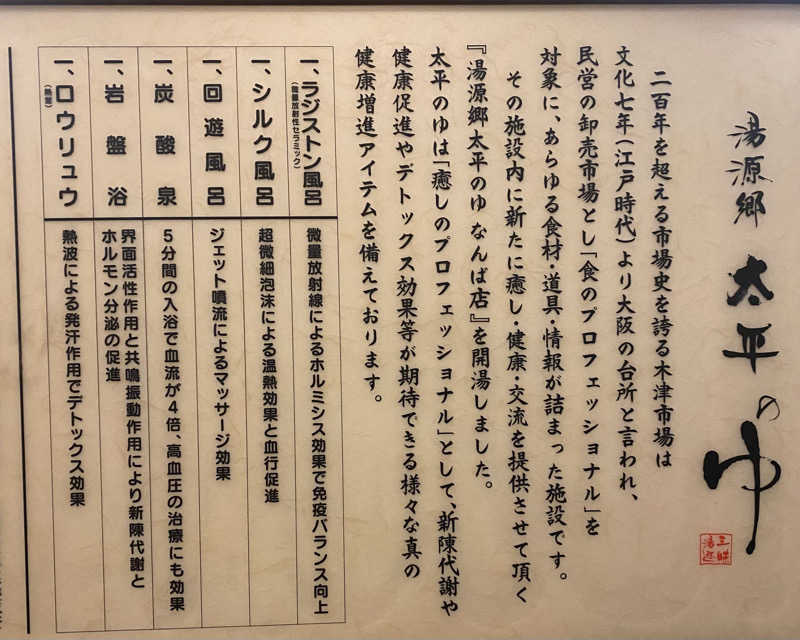 湯源郷 太平のゆ
二百年を超える市場史を誇る木津市場は
文化七年(江戸時代)より大阪の台所と言われ、
民営の卸売市場とし「食のプロフェッショナル」を
対象に、あらゆる食材・道具・情報が詰まった施設です。
その施設内に新たに癒し・健康・交流を提供させて頂く
『湯源郷 太平のゆ なんば店』を開湯しました。
太平のゆは「癒しのプロフェッショナル」として、新陳代謝や
健康促進やデトックス効果等が期待できる様々な真の
健康増進アイテムを備えております。
一、ラジストン風呂
(微量放射性セラミック)
微量放射線によるホルミシス効果で免疫バランス向上
一、シルク風呂
超微細泡沫による温熱効果と血行促進
一、回遊風呂
ジェット噴流によるマッサージ効果
一、炭酸泉
5分間の入浴で血流が4倍、高血圧の治療にも効果
一、岩盤浴
界面活性作用と共鳴振動作用により新陳代謝と
ホルモン分泌の促進
一、ロウリュウ
(熱波)
熱波による発汗作用でデトックス効果